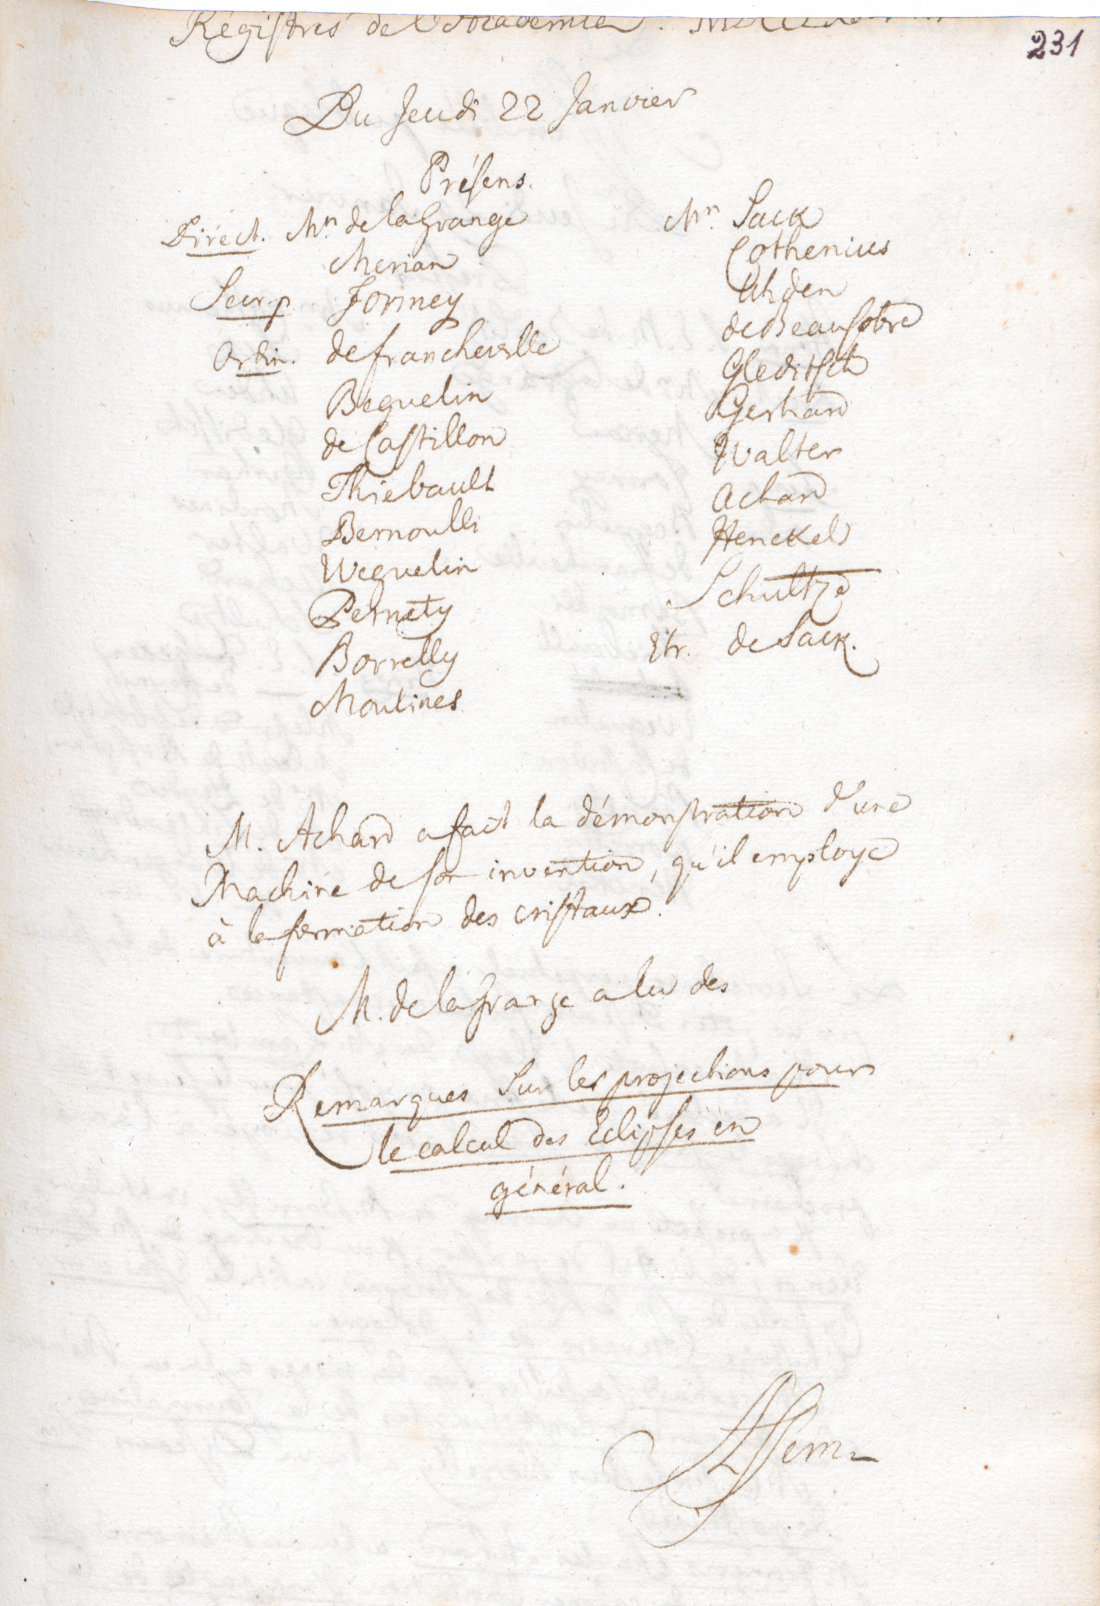 Régistres de l'Academie.
231
Du Jeudi 22 Janvier
Présens.
Direct. Mrs. de la Grange
Merian
Secr. p. Formey
Ordin. de Francheville
Beguelin
de Castillon
Thiebault
Bernoulli
Weguelin
Pernety
Borrelly
Moulines
Mrs. Sack
Cothenius
Uhden
de Beausobre
Gleditsch
Gerhard
Walter
Achard
Henckel
Schultze
Etr. de Sack.
M. Achard a fait la démonstration d'une
Machine de son invention, qu'il employe
à la formation des cristaux.
M. de la Grange a lu des
Remarques sur les projections pour
le calcul des Eclipses en
général.